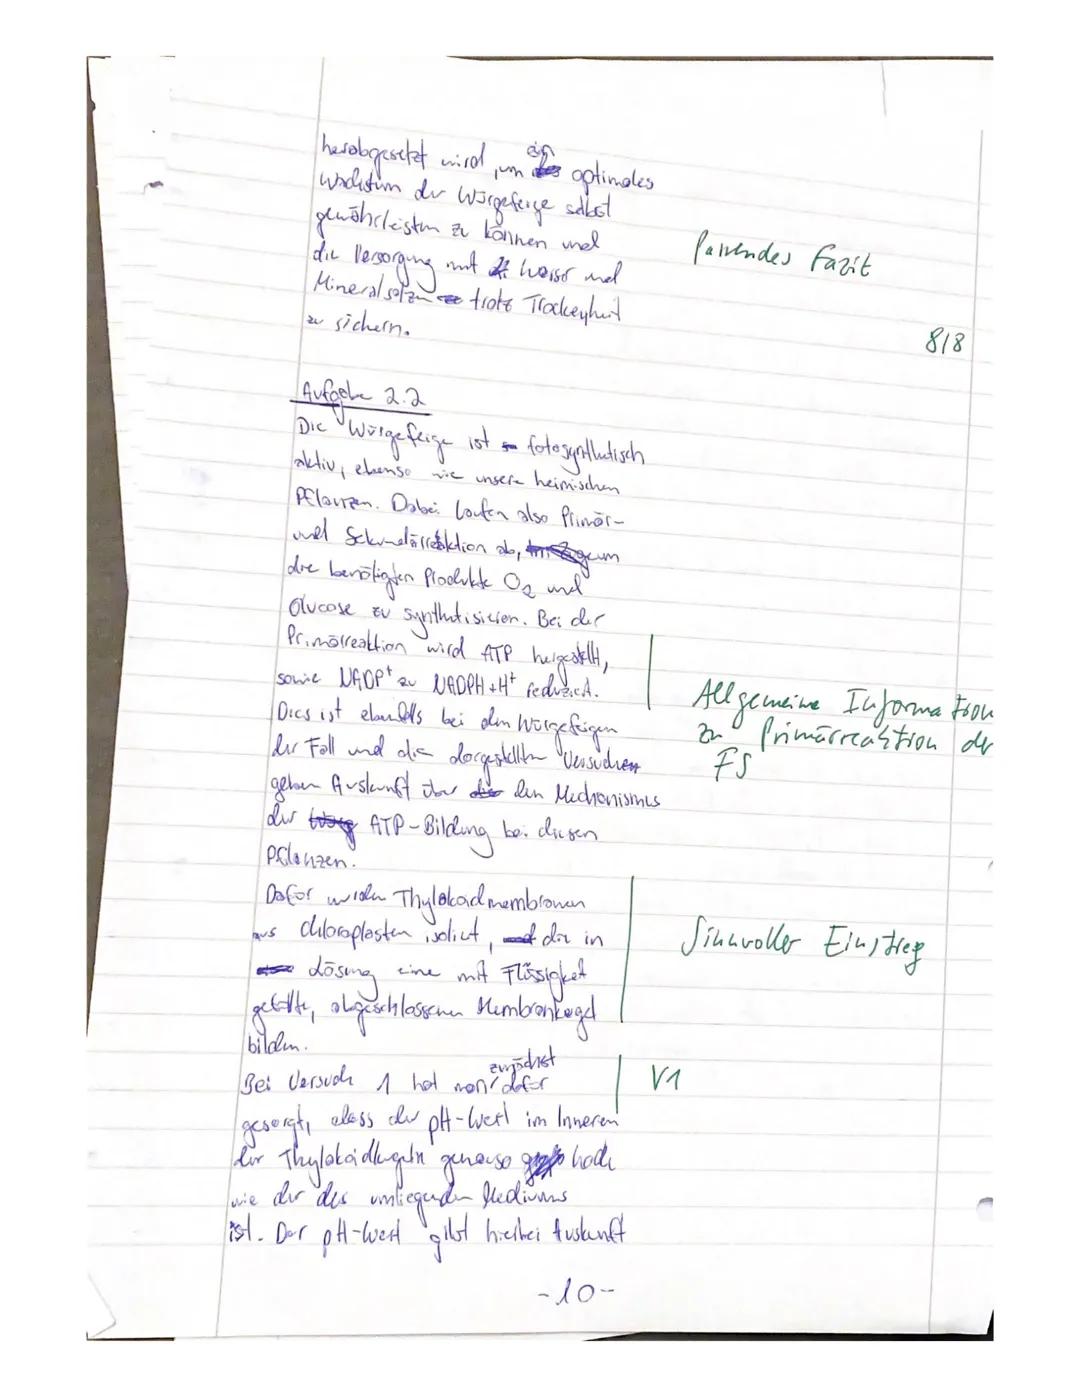 herabgesetzt wird, um ein optimales
Wachstum der Würgefeige selbst
gewährleisten zu können und
die Versorgung mit Wasser und
Passendes Fazit
Mineralsalzen trotz Trockenheit
zu sichern.
8/8
Aufgabe 2.2
Die Würgefeige ist fotosynthetisch
aktiv, ebenso wie unsere heimischen
Pflanzen. Dabei laufen also Primär-
und Sekundärreaktion ab, um
die benötigten Produkte O2 und
Glucose zu synthetisieren. Bei der
Primärreaktion wird ATP hergestellt,
sowie NADP+ zu NADPH+H+ reduziert.
Allgemeine Information
zu Primärreaktion der
FS
Dies ist ebenfalls bei den Würgefeigen
der Fall und die dargestellten Versuchen
geben Auskunft über den Mechanismus
der ATP-Bildung bei diesen
Pflanzen.
Dafür werden Thylakoidmembranen
aus Chloroplasten isoliert, die in
Sinnvoller Einstieg
Lösung eine mit Flüssigkeit
gefüllte, abgeschlossenen Membrankugel
bilden.
Bei Versuch 1 hat man zunächst dafür
V1
gesorgt, dass der pH-Wert im Inneren
der Thylakoidkugeln genauso hoch
wie der des umliegenden Mediums
ist. Der pH-Wert gibt hierbei Auskunft
-10-